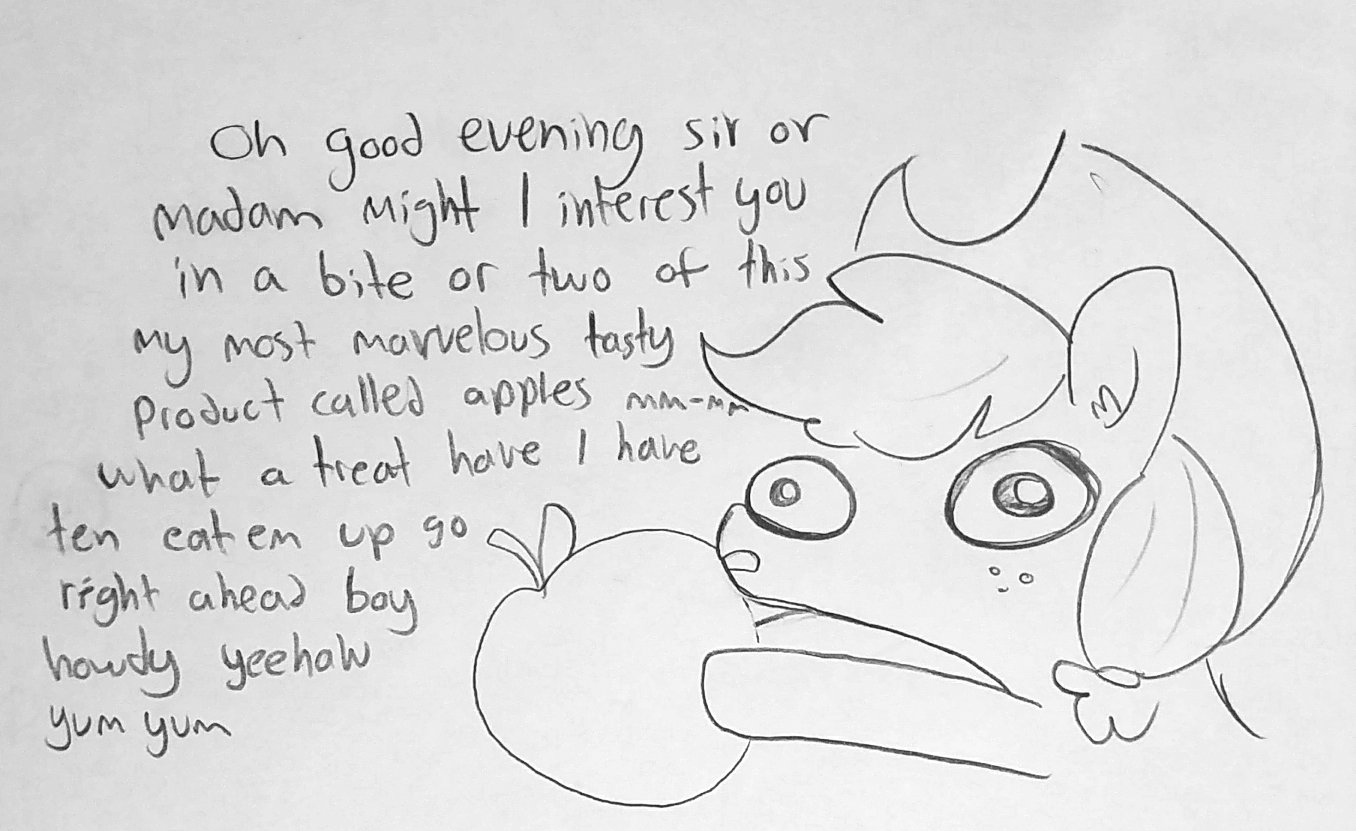 Oh good evening sir or
madam might I interest you
in a bite or two of this
my most marvelous tasty
product called apples mm-mm
what a treat have I have
ten eat em up go
right ahead boy
howdy yeehaw
yum yum